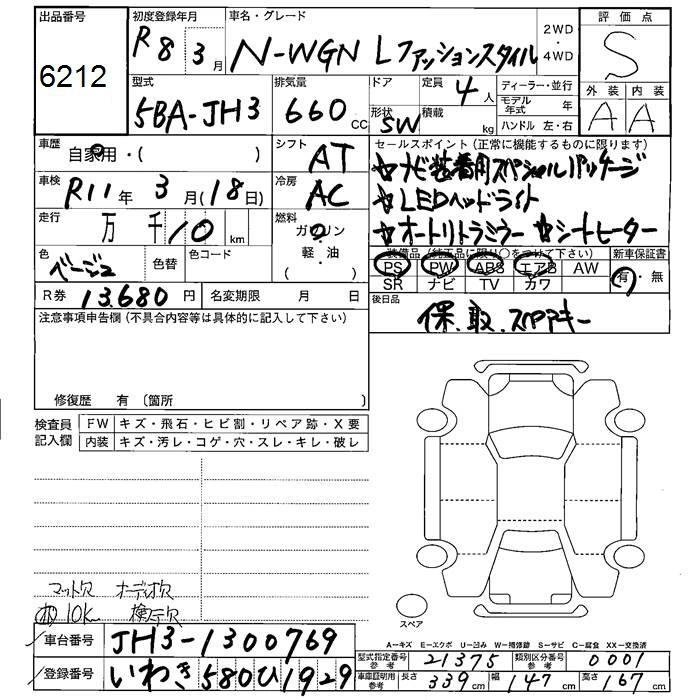 出品番号
6212
初度登録年月
R8年3月
車名・グレード
N-WGN Lファッションスタイル
2WD・4WD
評価点
S
外装 内装
A A
型式
5BA-JH3
排気量
660 cc
ドア
形状
SW
定員
4人
積載
kg
ディーラー・並行
モデル年式 年
ハンドル 左・右
車歴
自家用・( )
シフト
AT
セールスポイント(正常に機能するものに限ります)
☆ナビ装着用スペシャルパッケージ
☆LEDヘッドライト
☆オートリトラミラー ☆シートヒーター
車検
R11年3月(18日)
冷房
AC
走行
万 千10 km
燃料
ガソリン
軽・油
( )
色
ベージュ
色替
色コード
装備品(純正品に限り○をつけて下さい)
PS PW ABS エアB AW
SR ナビ TV カワ
新車保証書
有・無
R券 13,680 円
名変期限 月 日
後日品
保.取.スペアキー
注意事項申告欄(不具合内容等は具体的に記入して下さい)
修復歴 有〔箇所 〕
検査員記入欄
FW キズ・飛石・ヒビ割・リペア跡・X要
内装 キズ・汚レ・コゲ・穴・スレ・キレ・破レ
マット欠 オーディオ欠
10K 検ステ欠
スペア
A-キズ E-エクボ U-凹み W-補修跡 S-サビ C-腐食 XX-交換済
車台番号 JH3-1300769
登録番号 いわき580ひ1929
型式指定番号参考 21375
類別区分番号参考 0001
車庫証明用参考 長さ 339cm 幅 147cm 高さ 167cm